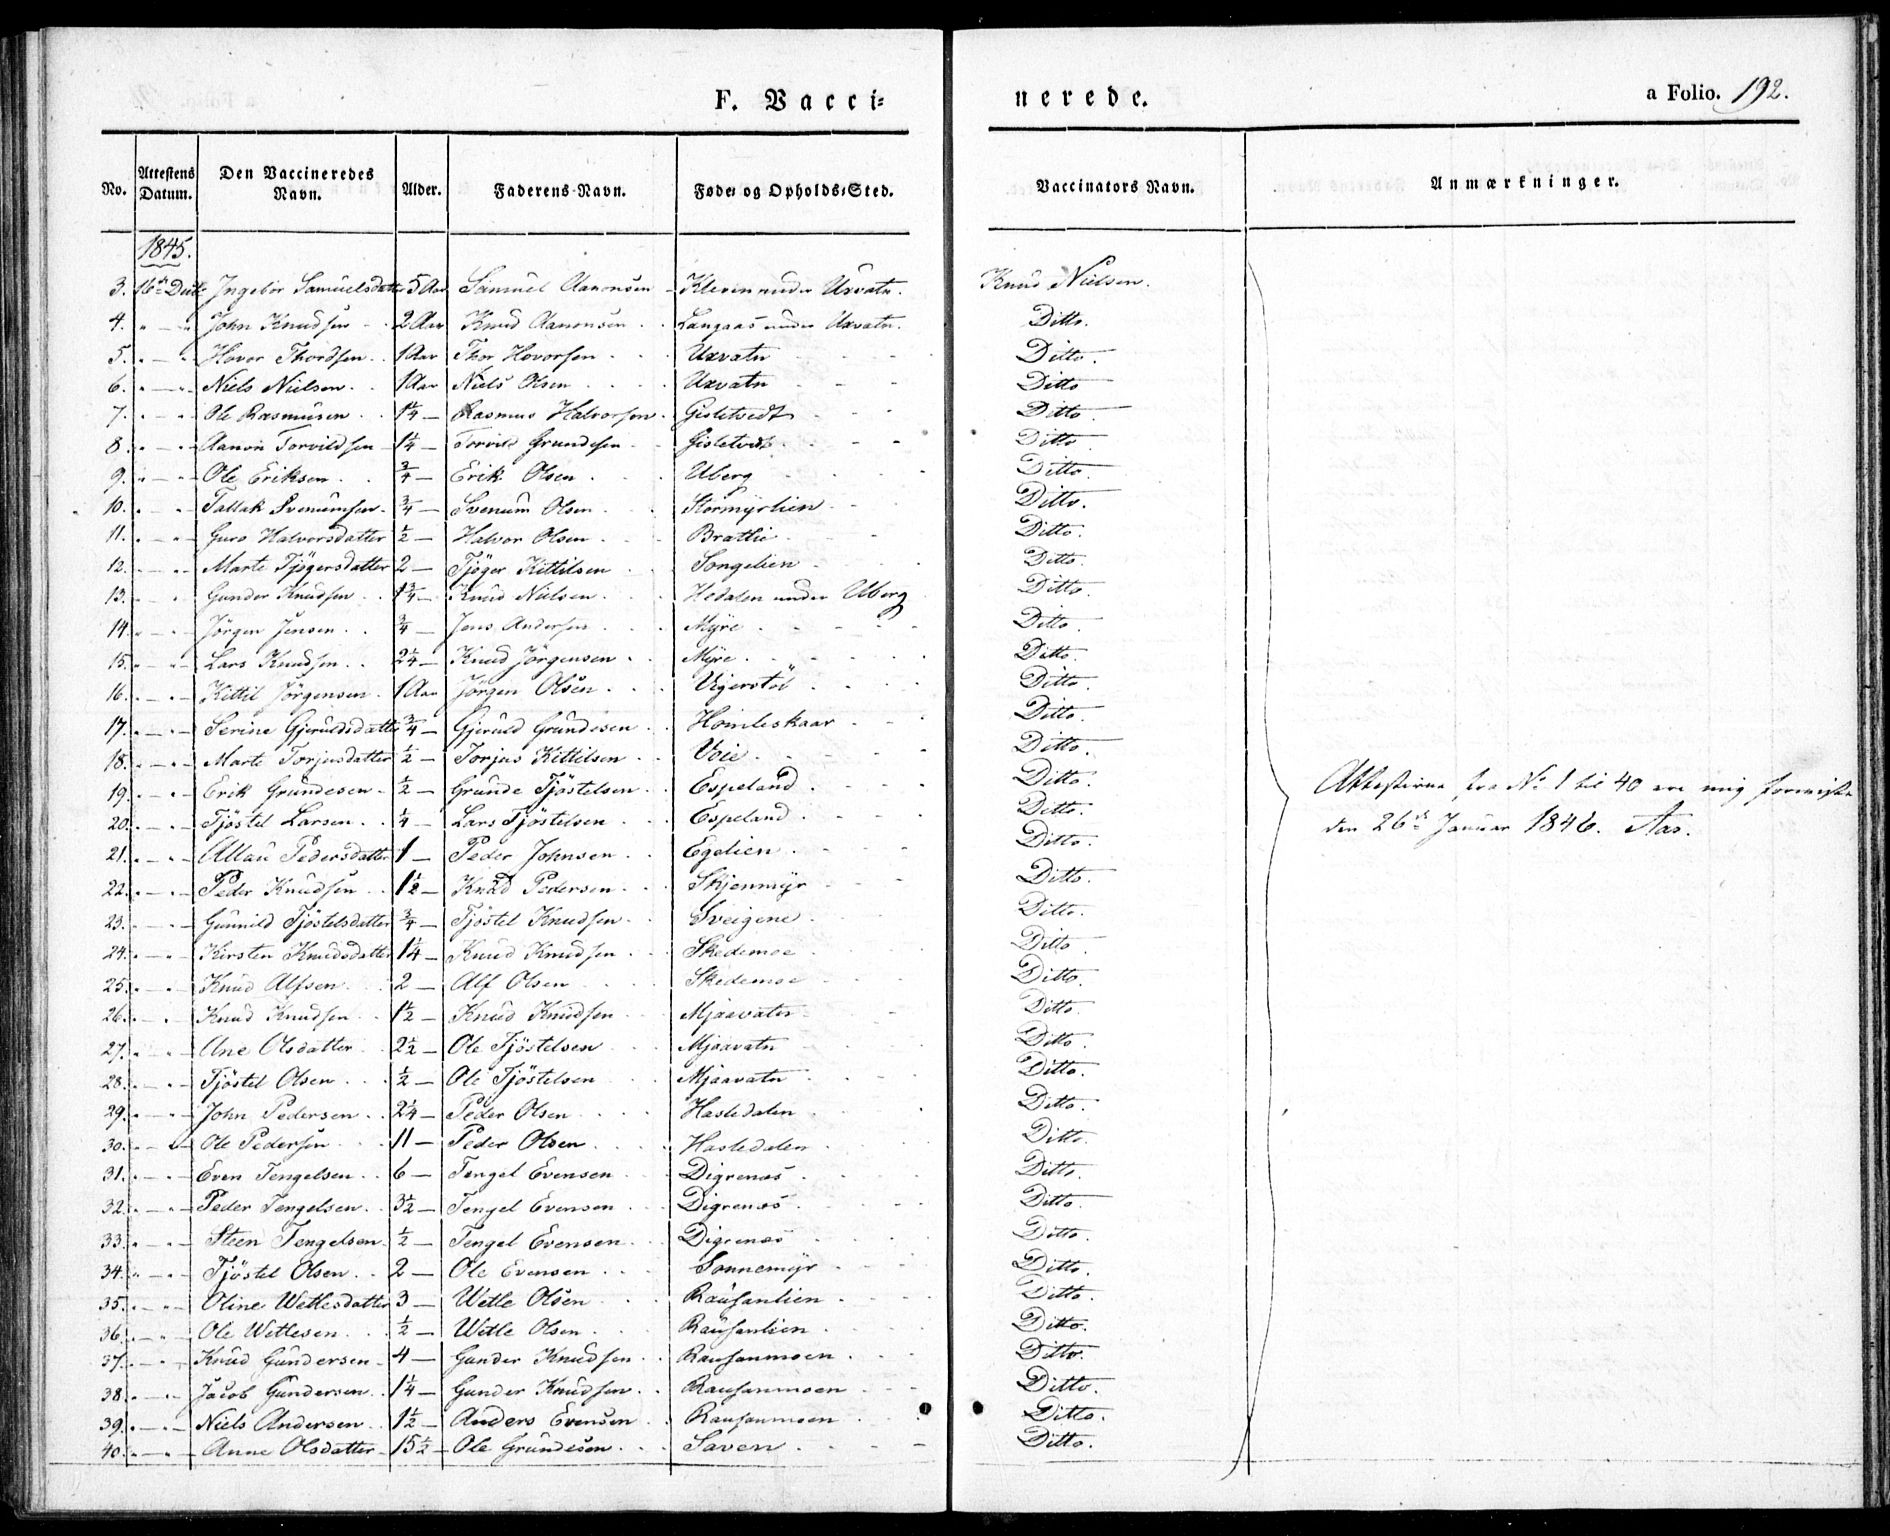 F. Vacci=
nerede.
a Folio. 192.
No. Attestens Datum. Den Vaccineredes Navn. Alder. Faderens Navn. Føde= og Opholds=Sted. Vaccinators Navn. Anmærkninger.
1845.
3. 16de Ingebor Samuelsdatter 5 Aar Samuel Aanonsen - Klevin under Uxvatn. Knud Nielsen.
4. " — " John Knudsen 2 Aar Knud Aanonsen Langaas under Uxvatn. Ditto.
5. " — " Hovor Thordsen 1 Aar Thor Hovorsen Uxvatn Ditto.
6. " — " Niels Nielsen 1 Aar Niels Olsen Uxvatn Ditto
7. " — " Ole Rasmusen 1¼ — Rasmus Halvorsen Gisletvedt Ditto
8. " — " Aanon Torvildsen 1¼ — Torvild Grundesen Gisletvedt Ditto
9. " — " Ole Eriksen ¾ — Erik Olsen Uberg Ditto.
10. " — " Tallak Svenumsen ¾ — Svenum Olsen Stormyrlien Ditto.
11. " — " Guro Halvorsdatter ½ — Halvor Olsen Bratlie Ditto.
12. " — " Marte Tjøgersdatter 2 — Tjøger Kittilsen Songelien Ditto.
13. " — " Gunder Knudsen 1¾ — Knud Nielsen Hedalen under Uberg Ditto.
14. " — " Jörgen Jensen ¾ — Jens Andersen Myre Ditto.
15. " — " Lars Knudsen 2¼ — Knud Jörgensen Myre Ditto.
16. " — " Kittil Jörgensen 1 Aar Jörgen Olsen Vigerstöl Ditto.
17. " — " Serine Gjeruldsdatter ¾ — Gjeruld Grundesen Homleskaar Ditto.
18. " — " Marte Torjusdatter ½ — Torjus Kittilsen Voie Ditto.
19. " — " Erik Grundesen ½ — Grunde Tjöstelsen Espeland Ditto.
20. " — " Tjöstel Larsen ¼ — Lars Tjöstelsen Espeland Ditto.
21. " — " Pedersdatter 1 — Peder Johnsen Egelien Ditto.
22. " — " Peder Knudsen 1½ — Knud Pedersen Skjenmyr Ditto.
23. " — " Gunnild Tjöstelsdatter ¾ — Tjöstel Knudsen Sveigene Ditto.
24. " — " Kirsten Knudsdatter 1¼ — Knud Knudsen Skedemoe Ditto
25. " — " Knud Alfsen 2 — Alf Olsen Skedemoe Ditto.
26. " — " Knud Knudsen 1½ — Knud Knudsen Mjaavatn Ditto.
27. " — " Ane Olsdatter 2½ — Ole Tjöstelsen Mjaavatn Ditto.
28. " — " Tjöstel Olsen ½ — Ole Tjöstelsen Mjaavatn Ditto.
29. " — " John Pedersen 2¼ — Peder Olsen Hasledalen Ditto.
30. " — " Ole Pedersen 11 — Peder Olsen Hasledalen Ditto.
31. " — " Even Tengelsen 6 — Tengel Evensen Digrenæs Ditto.
32. " — " Peder Tengelsen 3½ — Tengel Evensen Digrenæs Ditto.
33. " — " Steen Tengelsen ½ — Tengel Evensen Digrenæs Ditto.
34. " — " Tjöstel Olsen 2 — Ole Evensen Sonnemyr Ditto.
35. " — " Oline Wetlesdatter 3 — Wetle Olsen Rausanlien Ditto.
36. " — " Ole Wetlesen ½ — Wetle Olsen Rausanlien Ditto.
37. " — " Knud Gundersen 4 — Gunder Knudsen Rausanmoen Ditto.
38. " — " Jacob Gundersen 1¼ — Gunder Knudsen Rausanmoen Ditto.
39. " — " Niels Andersen 1½ — Anders Evensen Rausanmoen Ditto.
40. " — " Anne Olsdatter 15½ — Ole Grundesen Saven Ditto.
Attesterne fra No 1 til 40 ere mig foreviste
den 26de Januar 1846. Aas.